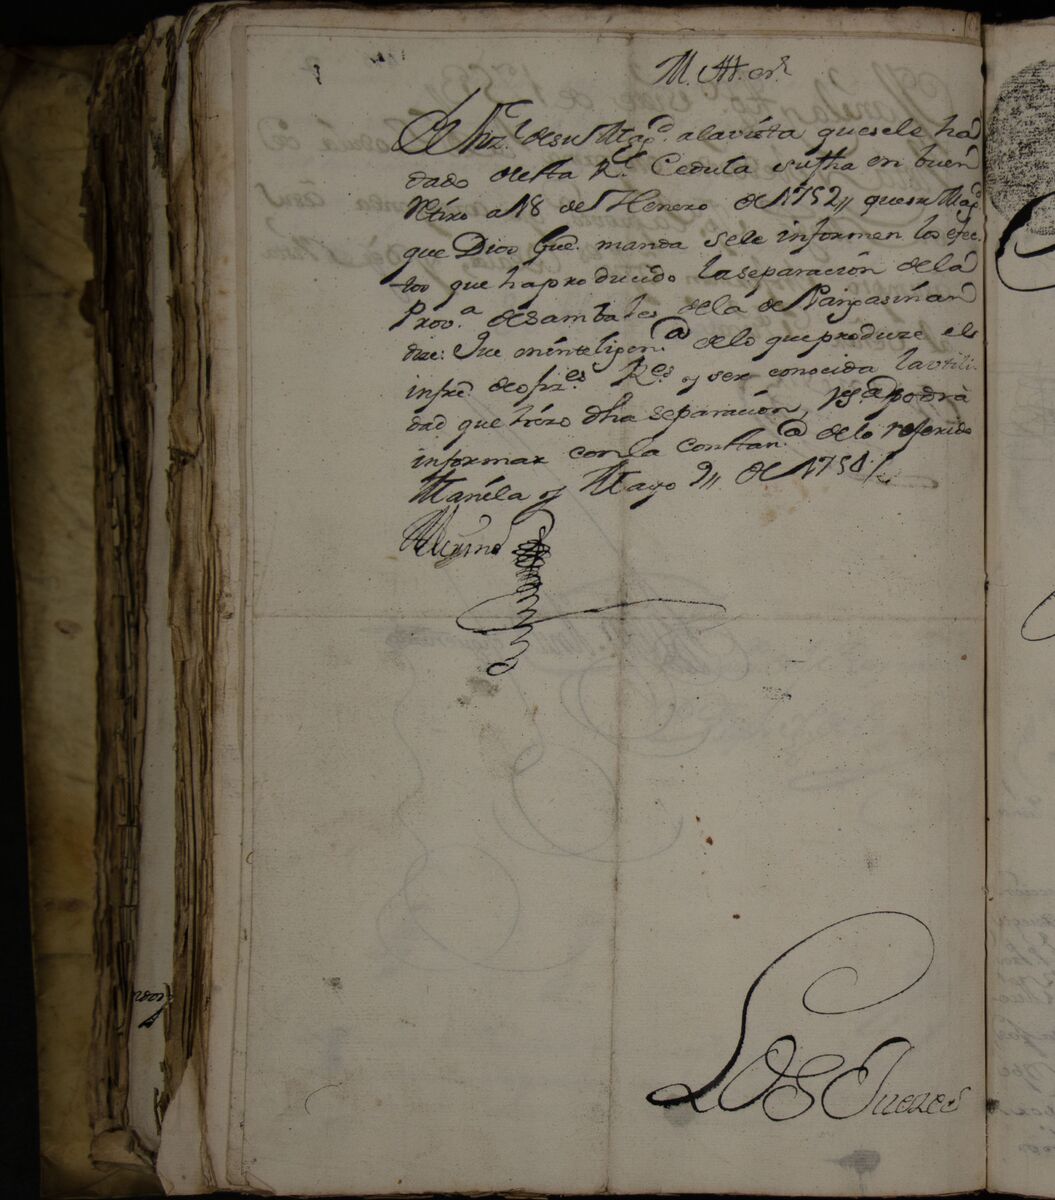 M. Ill. Sr.
El Fiz.l de su Mag.d a la vista que se le ha
dado de esta R.l Cedula su fha en buen
Retiro a 18 de Henero de 1752,, que su Mag.d
que Dios gue. manda se le informen los efec
tos que ha producido la separación de la
Prov.a de Sambales de la de Pangasinan
dize: Que en inteligen.a de lo que produze el
infre. de ofiz.es R.es y ser conocida la utili
dad que trêxo dha separación, podrà
informar con la constan.a de lo referido
Manila y Mayo 9,, de 1754.
Los Juezes